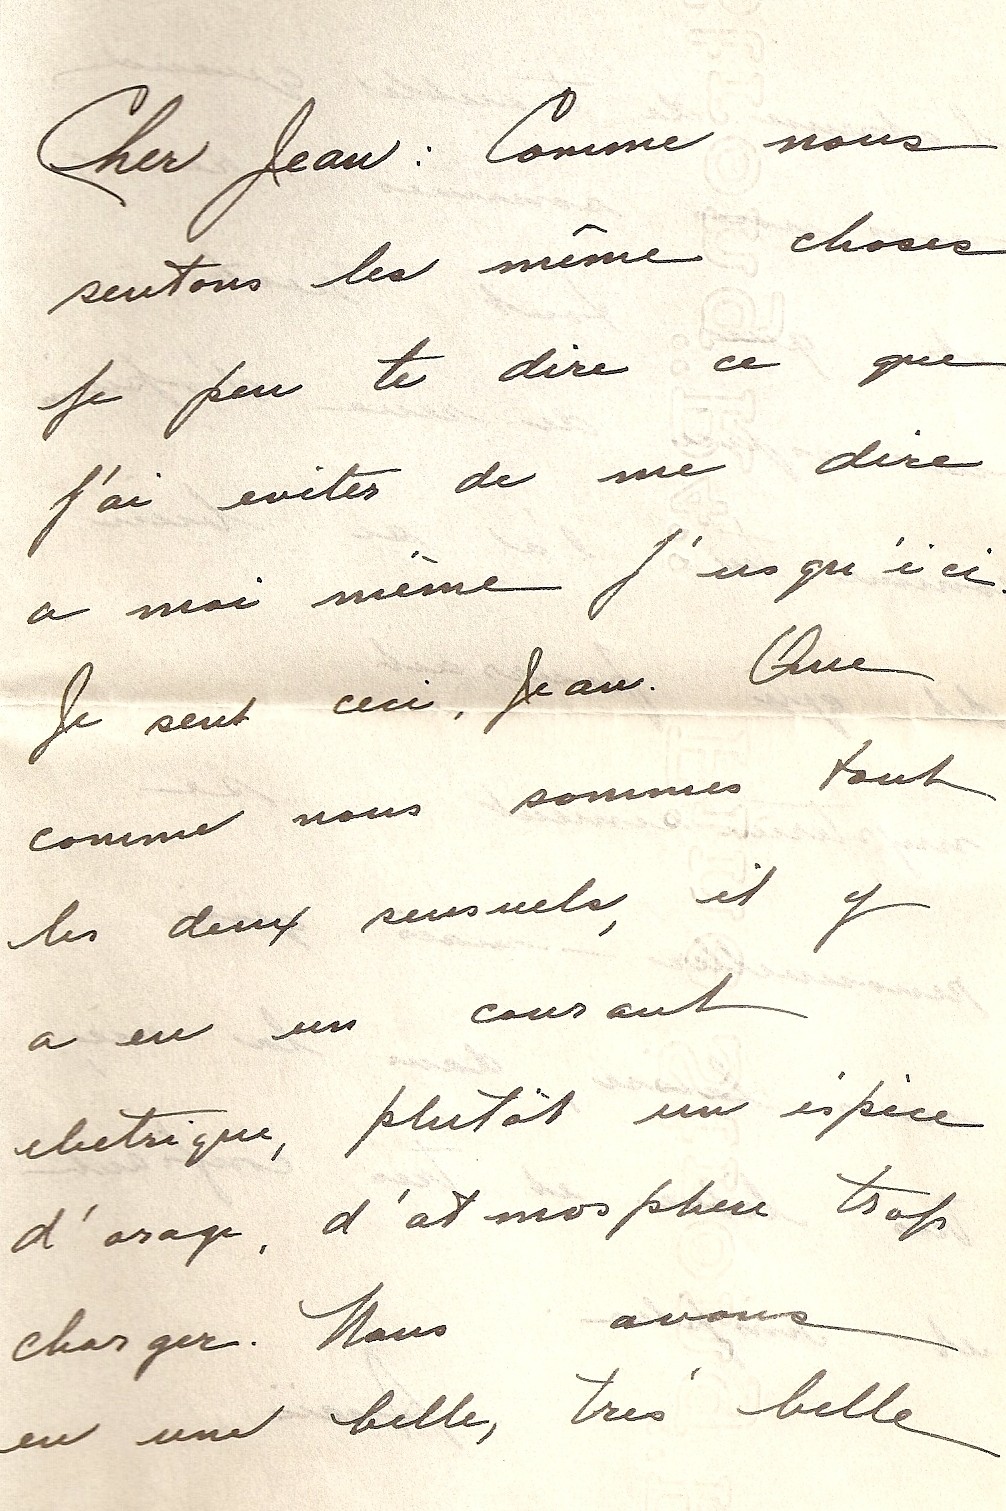 Cher Jean: Comme nous
sentons les même choses
je peu te dire ce que
j'ai eviter de me dire
a moi même j'usqu'ici.
Je sent ceci, Jean. Que
comme nous sommes tout
les deux sensuels, il y
a eu un courant
electrique, plutôt un éspèce
d'orage, d'atmosphere trop
charger. Nous avons
eu une belle, très belle